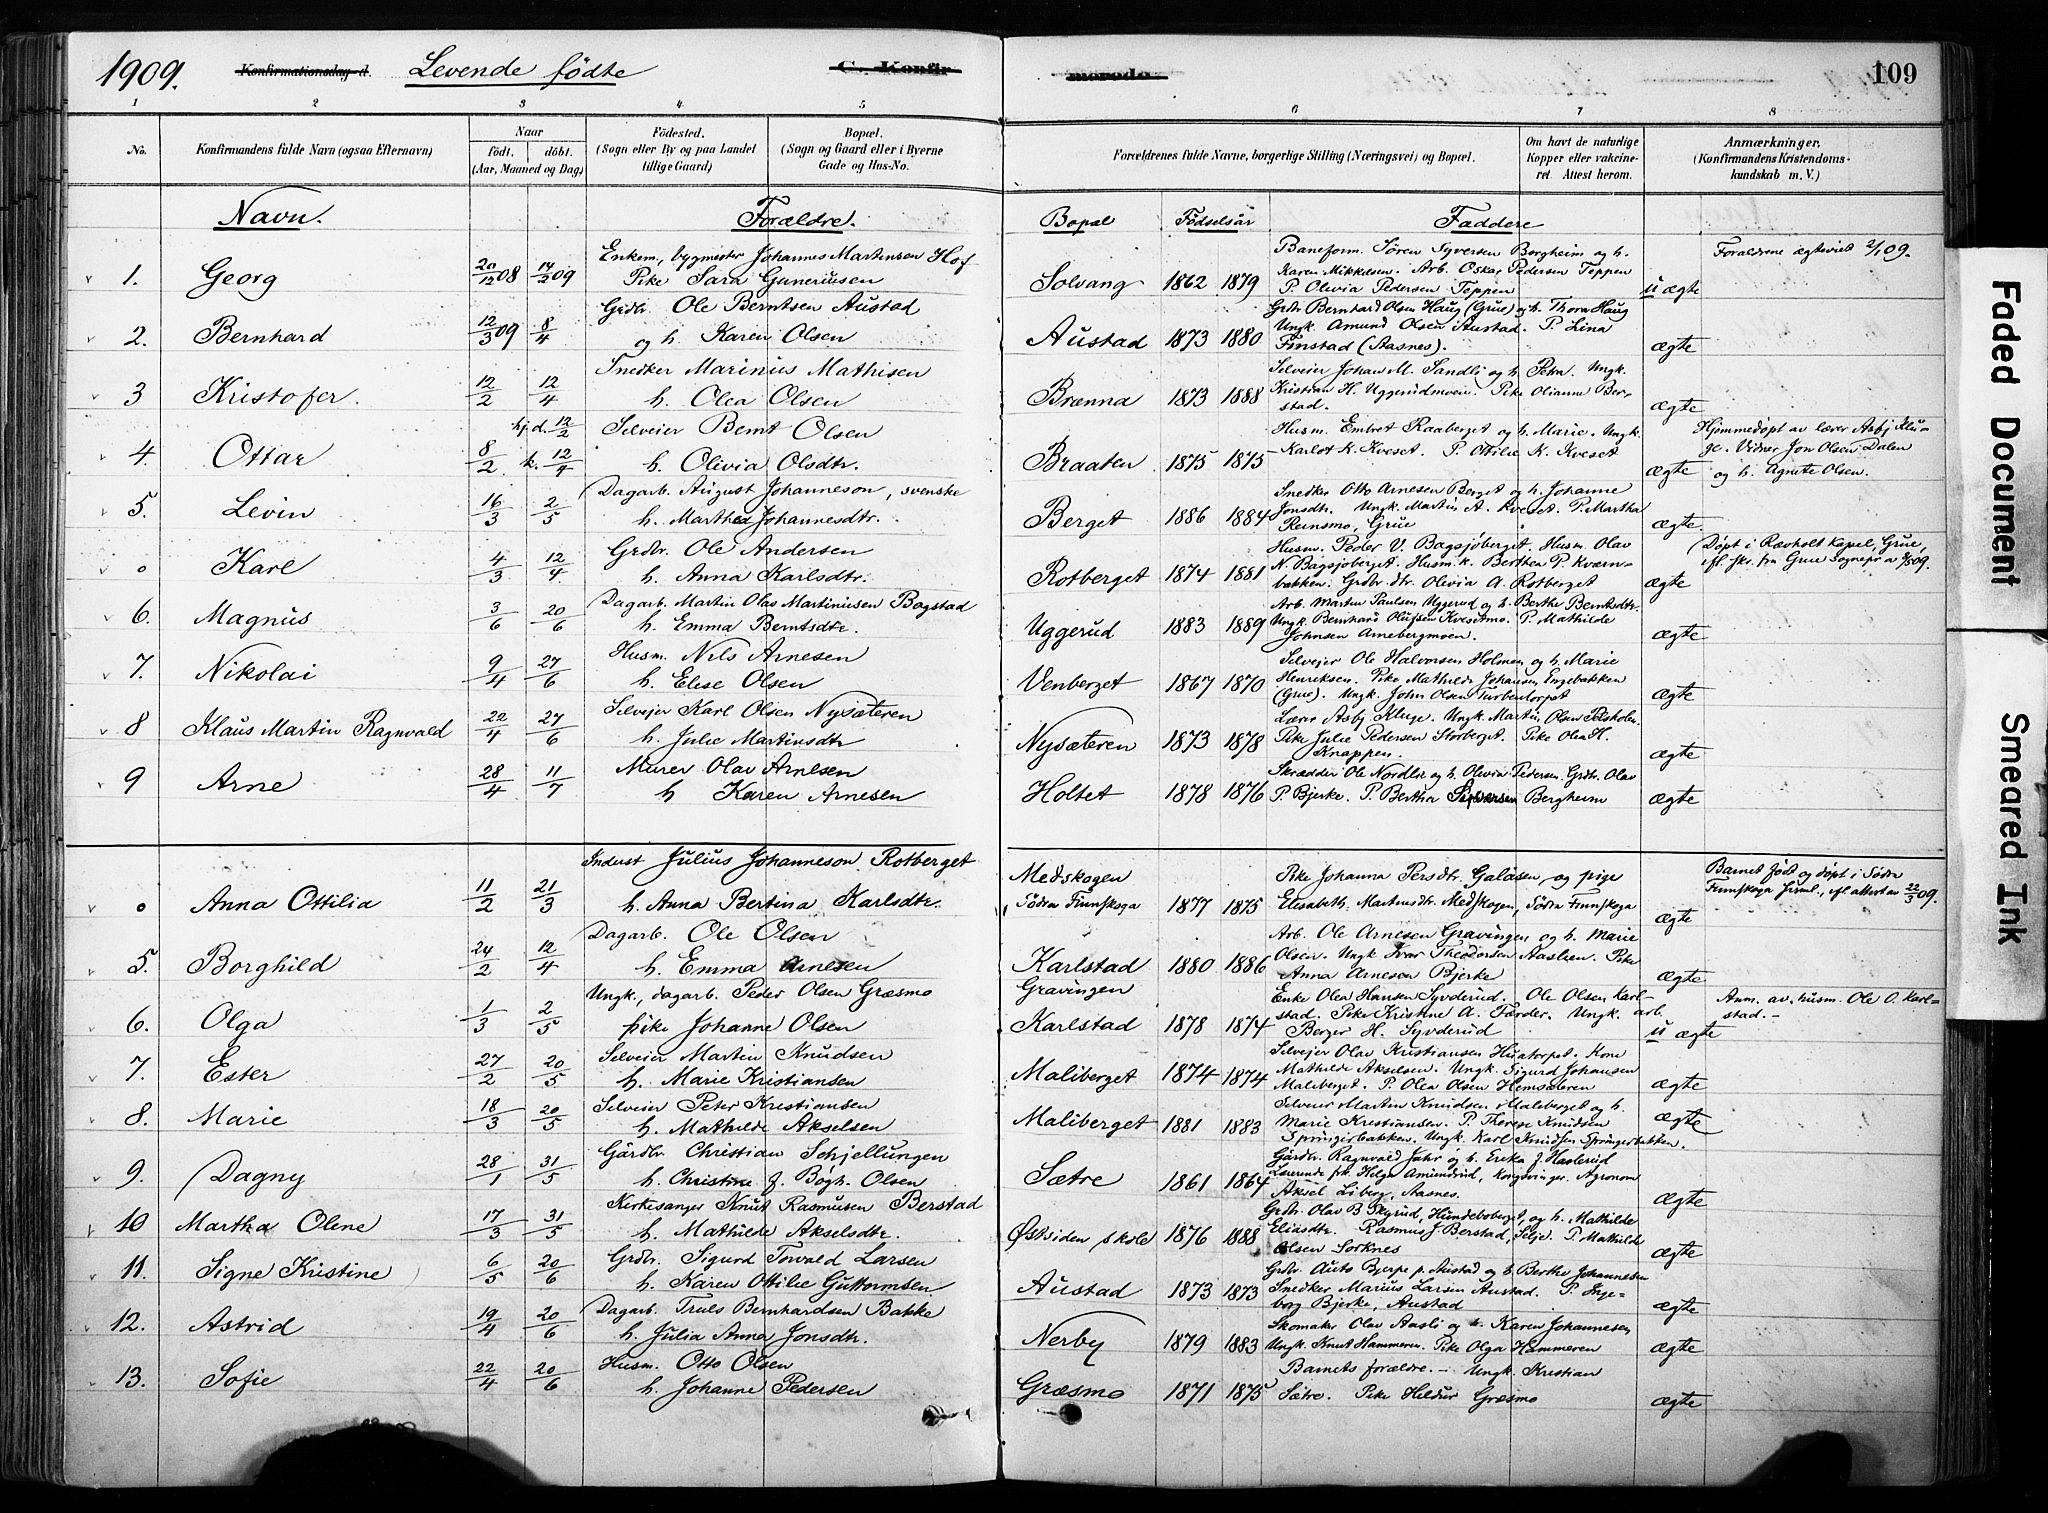 1909. Konfirmationsdag d. Levende fødte C. Konfirmerede. 109
1 2 3 4 5 6 7 8
No. Konfirmandens fulde Navn (ogsaa Efternavn) Naar født. døbt. (Aar, Maaned og Dag) Fødested. (Sogn eller By og paa Landet tillige Gaard) Bopæl. (Sogn og Gaard eller i Byerne Gade og Hus-No. Forældrenes fulde Navne, borgerlige Stilling (Næringsvei) og Bopæl. Om havt de naturlige Kopper eller vakcineret. Attest herom. Anmærkninger. (Konfirmandens Kristendomskundskab m. V.)
Navn. Forældre. Bopæl Fødselsår Faddere
Enkem., bygmester Johannes Martinsen Hof Baneform. Sören Syversen Borgheim og h. Forældrene ægteviet 2/1 09.
1. Georg 20/12 08 14/2 09 Pike Sara Guneriusen Solvang 1862 1879 Karen Mikkelsen. Arb. Oskar Pedersen Toppen
P. Olivia Pedersen Toppen uægte
Grdbr. Ole Berntsen Austad Grdbr. Bernhard Olsen Haug (Grue) og h. Thora Haug
2. Bernhard 12/3 09 8/4 og h. Karen Olsen Austad 1873 1880 Ungk. Amund Olsen Austad. P. Lina
Finstad (Aasnes). ægte
Snedker Marinus Mathisen Selveier Johan M. Sandli og h. Petra. Ungk.
3 Kristofer. 12/2 12/4 h. Olea Olsen Brænna 1873 1888 Kristian H. Uggerudmoen. Pike Olianne Berstad. ægte
hj.d. 12/2 Selveier Bernt Olsen Husm. Embret Raaberget og h. Marie. Ungk. Hjemmedøpt av lærer Asbj. Kluge.
4. Ottar 8/2 k. 12/4 h. Olivia Olsdtr. Braaten 1875 1875 Karlot K. Kveset. P. Ottilie K. Kveset ægte Vidner Jon Olsen Dalen
og h. Agnete Olsen.
Dagarb. August Johanneson, svenske Snedker Otto Arnesen Berget og h. Johanne
5. Levin 16/3 2/5 h. Marthea Johannesdtr. Berget 1886 1884 Jonsdtr. Ungk. Martin A. Kveset. P. Martha
Reinsmo, Grue ægte.
Grdbr. Ole Andersen Husm. Peder V. Bagsjøberget. Husm. Olav Døpt i Rævholt Kapel, Grue,
o Karl 4/3 12/4 h. Anna Karlsdtr. Rotberget 1874 1881 N. Bagsjøberget. Husm. k. Berthea P. Kværnbakken. Grdbr. dtr. Olivia A. Rotberget ægte
Dagarb. Martin Olaus Martinusen Bogstad Arb. Martin Paulsen Uggerud og h. Berthe Berntsdtr.
6. Magnus 3/6 20/6 h. Emma Berntsdtr. Uggerud 1883 1889 Ungk. Bernhard Olufsen Kvesetmo. P. Mathilde
Johnsen Arnebergmoen. ægte
Husm. Nils Arnesen Selvejer Ole Halvorsen Holmen og h. Marie
7. Nikolai 9/4 27/6 h. Elise Olsen Venberget 1867 1870 Henriksen. Pike Mathilde Johansen Engebakken
(Grue). Ungk. John Olsen Furbentorpet ægte
Selvejer Karl Olsen Nysæteren Lærer Asbj. Kluge. Ungk. Martin Olsen
8 Klaus Martin Ragnvald 22/4 27/6 h. Julie Martinsdtr Nysæteren 1873 1878 Pike Julie Pedersen Storberget. Pike Olea H.
Knappen. ægte
Murer Olav Arnesen Skrædder Ole Nordli og h. Olivia Pedersen. Grdbr. Olav
9 Arne 28/4 11/7 h Karen Arnesen Holtet 1878 1876 P. Bjerke. P. Bertha Syversen Bergheim ægte
Inderst Julius Johanneson Rotberget Medskogen Pike Johanna Persdtr. Galåsen, og pige Barnet født og døpt i Södra
o Anna Ottilia 11/2 21/3 h. Anna Bertina Karlsdtr. Södra Finnskoga 1877 1875 Elisabeth Martinsdtr. Medskogen, Södra Finnskoga ægte Finnskoga forsml., efl. attest av 22/3 09.
Dagarb. Ole Olsen Arb. Ole Arnesen Gravingen og h. Marie
5. Borghild 24/2 12/4 h. Emma Arnesen Karlstad 1880 1886 Olsen. Ungk. Ivar Theodorsen Aaslien. Pike
Gravingen Anna Arnesen Bjerke ægte
Ungk., dagarb. Peder Olsen Græsmo Enke Olea Hansen Syvderud. Ole Olsen Karlstad. Anm. av husm. Ole O. Karlstad.-
6. Olga 1/3 2/5 pike Johanne Olsen Karlstad 1878 1874 Pike Kristine A. Förder. Ungk. arb.
Berger H. Syvderud uægte
Selveier Martin Knudsen Selvejer Olav Kristiansen Huatorpet. Kone
7. Ester 27/2 20/5 h. Marie Kristiansen Maliberget 1874 1874 Mathilde Akselsen. Ungk. Sigurd Johansen
Maliberget. P. Olea Olsen Hemsæteren ægte
Selveier Peter Kristiansen Selveier Martin Knudsen Maliberget og h.
8. Marie 18/3 20/5 h. Mathilde Akselsen Maliberget 1881 1883 Marie Kristiansen. P. Therese Knudsen ægte
Springirbakken. Ungk. Karl Knudsen Springerbakken.
Gårdbr. Christian Schjellungen Gårdbr. Ragnvald Jahr og h. Erika f. Haslerud
9. Dagny 28/1 31/5 h. Christine f. Bögh. Olsen Sætre 1861 1864 Lærerinde frk. Helga Amundrud, Kongsvinger. Agronom
Aksel Liberg, Aasnes. ægte
Kirkesanger Knut Rasmusen Berstad Grdbr. Olav B. Skyrud, Hundeboberget, og h. Mathilde
10 Martha Olene 17/3 31/5 h. Mathilde Akselsdtr. Østsiden skole 1876 1888 Eliasdtr. Rasmus J. Berstad, Selje. P. Mathilde
Olsen Sorknes ægte
Grdbr. Sigurd Torvald Larsen Grdbr. Auto Bjerpe p. Austad og h. Berthe Johannesen
11. Signe Kristine 6/5 20/6 h. Karen Ottilie Guttormsen Austad 1873 1873 Snedker Marius Larsen Austad. P. Ingeborg Bjerke, Austad ægte
Dagarb. Truls Bernhardsen Bakke Skomaker Olav Aasli og h. Karen Johannesen
12. Astrid 19/4 20/6 h. Julia Anna Jonsdtr. Nerby 1879 1883 Ungk. Knut Hammeren. Pike Olga Hammeren ægte
Husm. Otto Olsen Barnets forældre. - Ungk. Kristian
13. Sofie 22/4 20/6 h. Johanne Pedersen Græsmo 1871 1875 Sætre. Pike Hildur Græsmo ægte
Faded Document
Smeared Ink